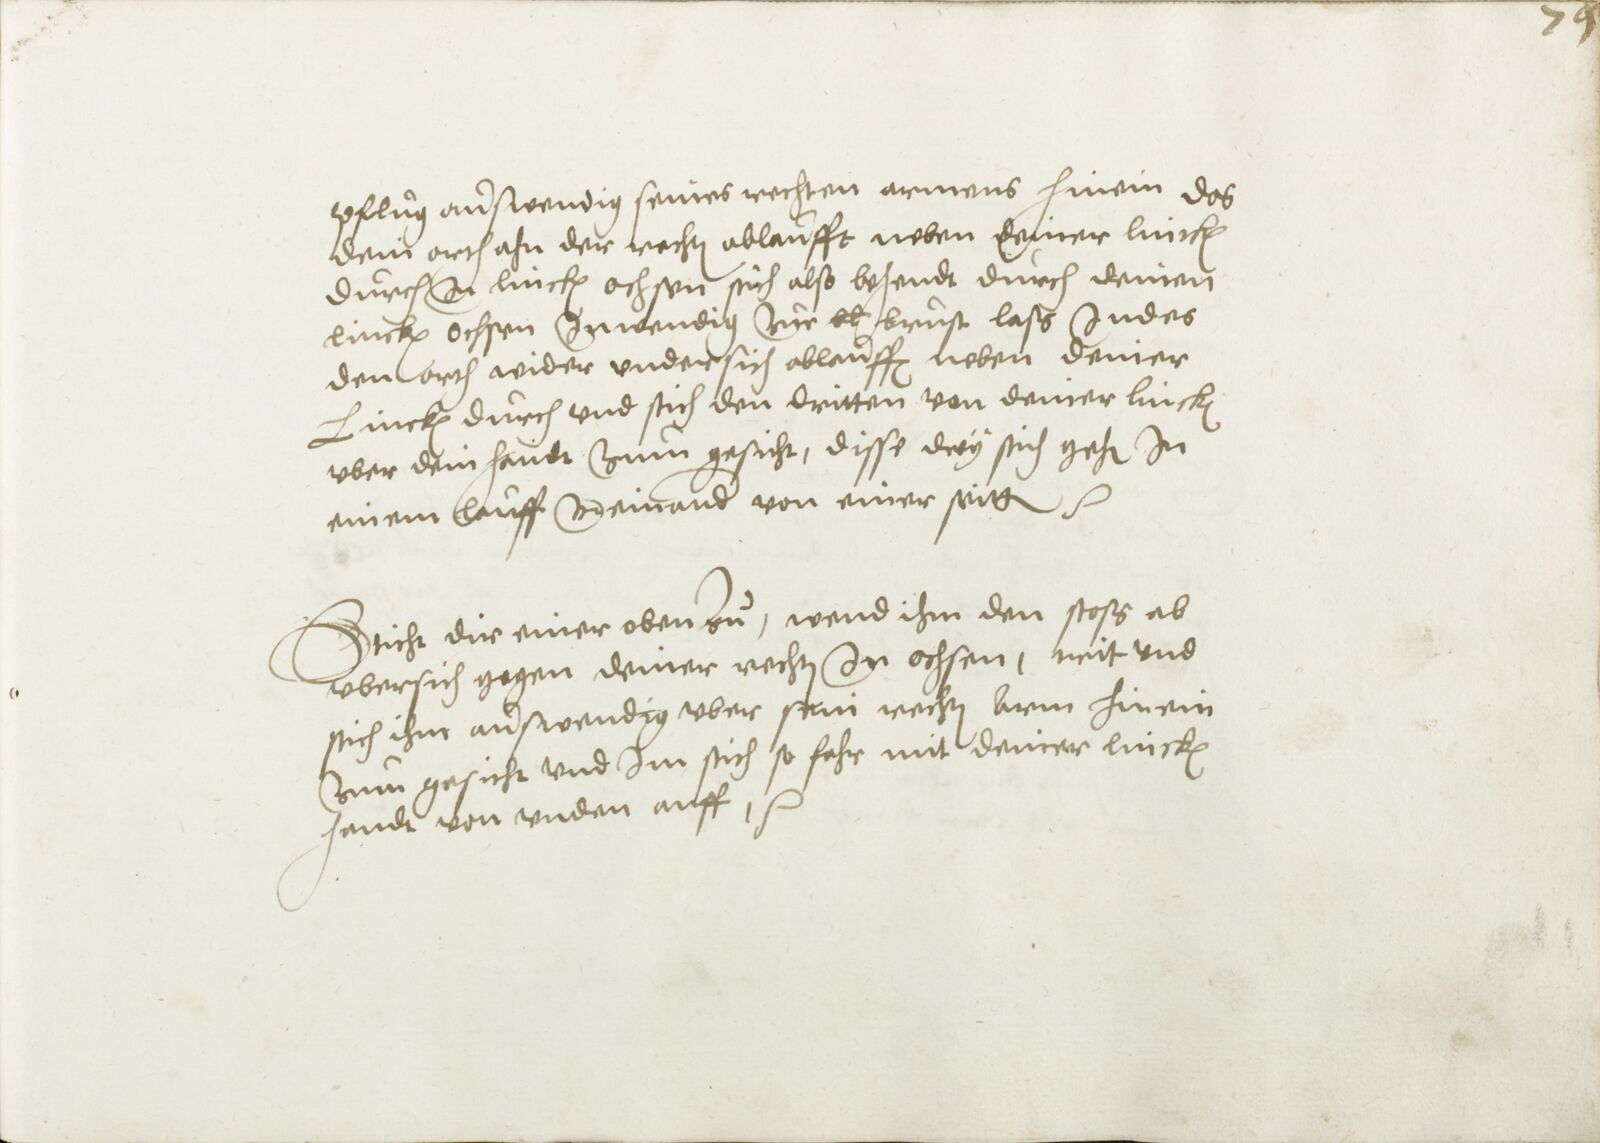 79
pflug auswendig seines rechten armens hinein das
dein orth ahn der recht ablaufft neben deiner linck
durch In linck ochsen stich also behendt durch deinen
linck ochsen Inwendig zur brust lass Indes
den orth wider undersich ablauff neben deiner
Linck durch und stich den dritten von deiner linck
uber dein handt zum gesicht, disse drÿ stich gehe In
einem lauff zueinand von einer seitt
Sticht dir einer oben zu, wend ihm den stoss ab
ubersich gegen deiner recht In ochsen, tritt und
stich ihm auswendig uber sein recht Arm hinein
zum gesicht und Im stich so fahr mit deiner linck
handt von unden auff,